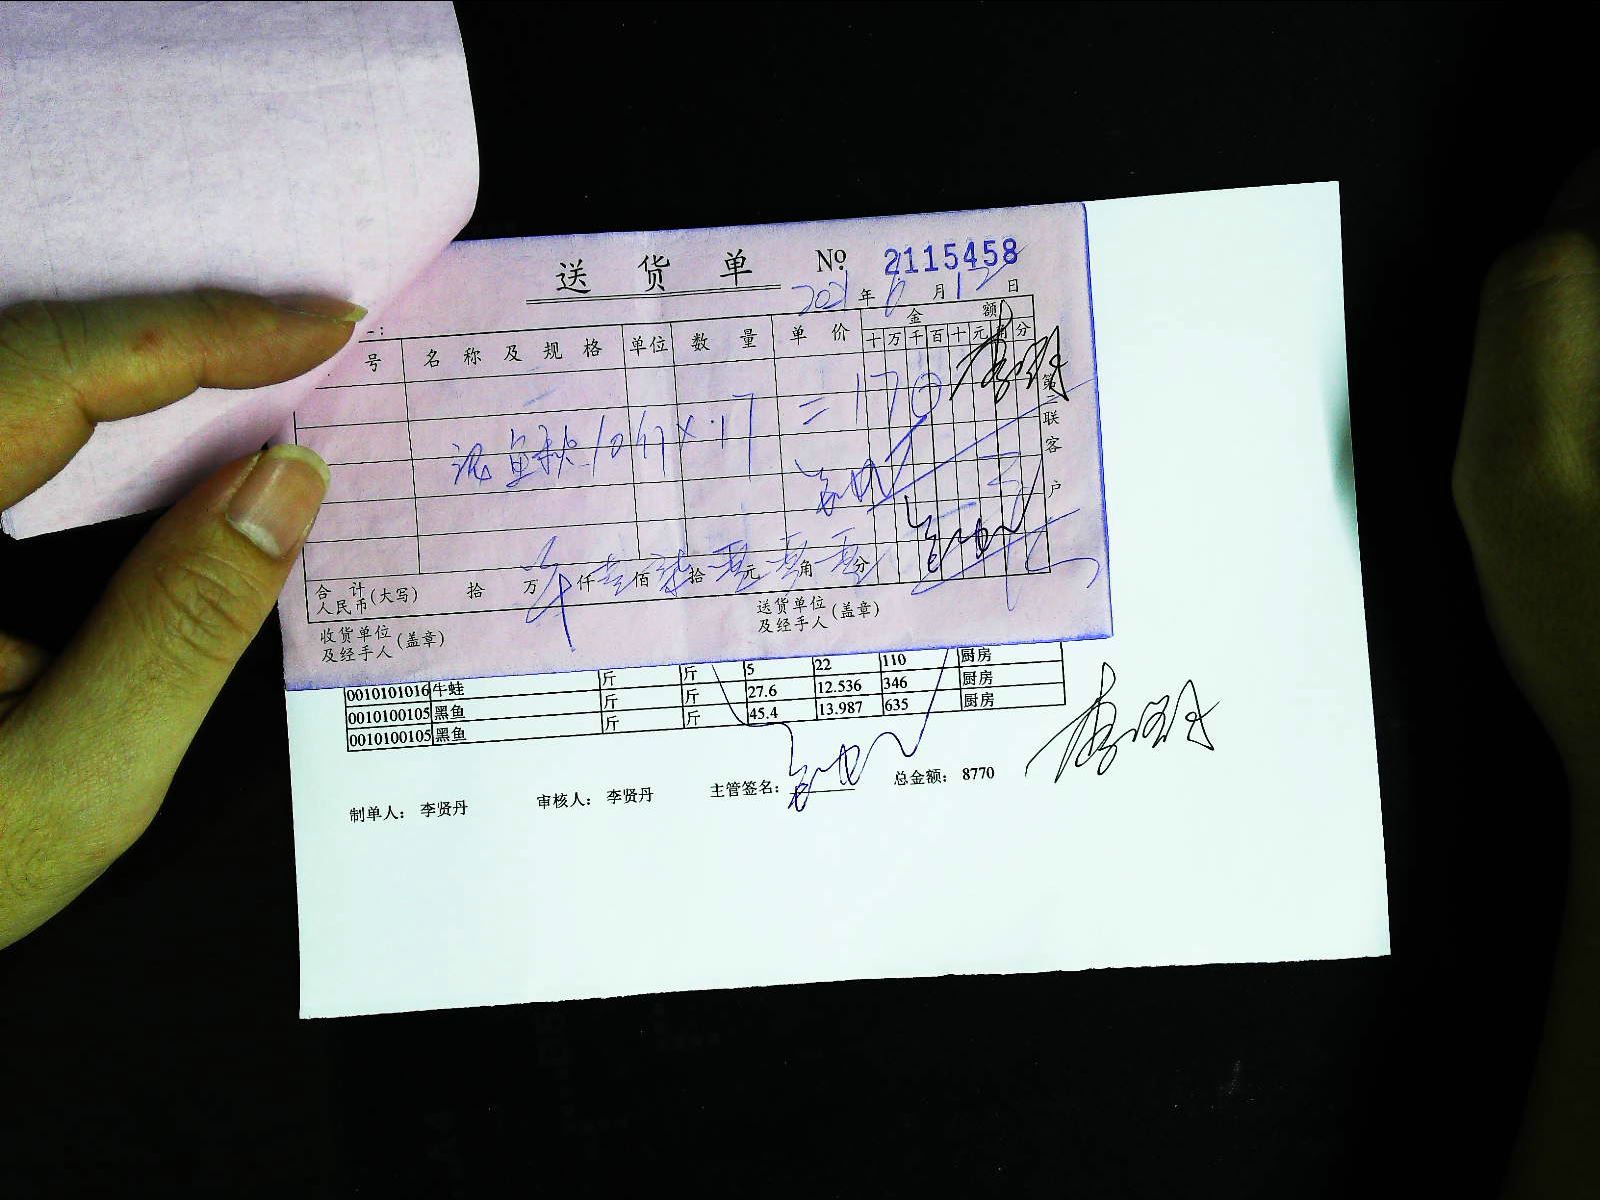 送货单 № 2115458
2021年6月12日
号 名称及规格 单位 数量 单价 金额
十万千百十元角分
泥鱼秋 10斤×17 =170
第三联客户
合计人民币(大写) 拾 万 仟壹佰柒拾零元零角零分
收货单位及经手人(盖章) 送货单位及经手人(盖章)
斤 斤 5 22 110 厨房
0010101016 牛蛙 斤 斤 27.6 12.536 346 厨房
0010100105 黑鱼 斤 斤 45.4 13.987 635 厨房
0010100105 黑鱼
制单人: 李贤丹 审核人: 李贤丹 主管签名: 总金额: 8770